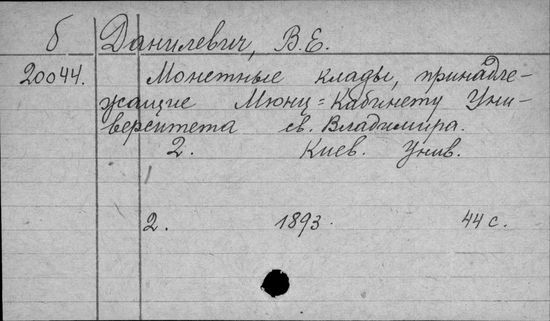 б Данилевич, В.Е.
20044. Монетные клады, принадле-
жащие Мюнц=Кабинету Уни-
верситета св. Владимира.
2. Киев. Унив.
2. 1893. 44 с.